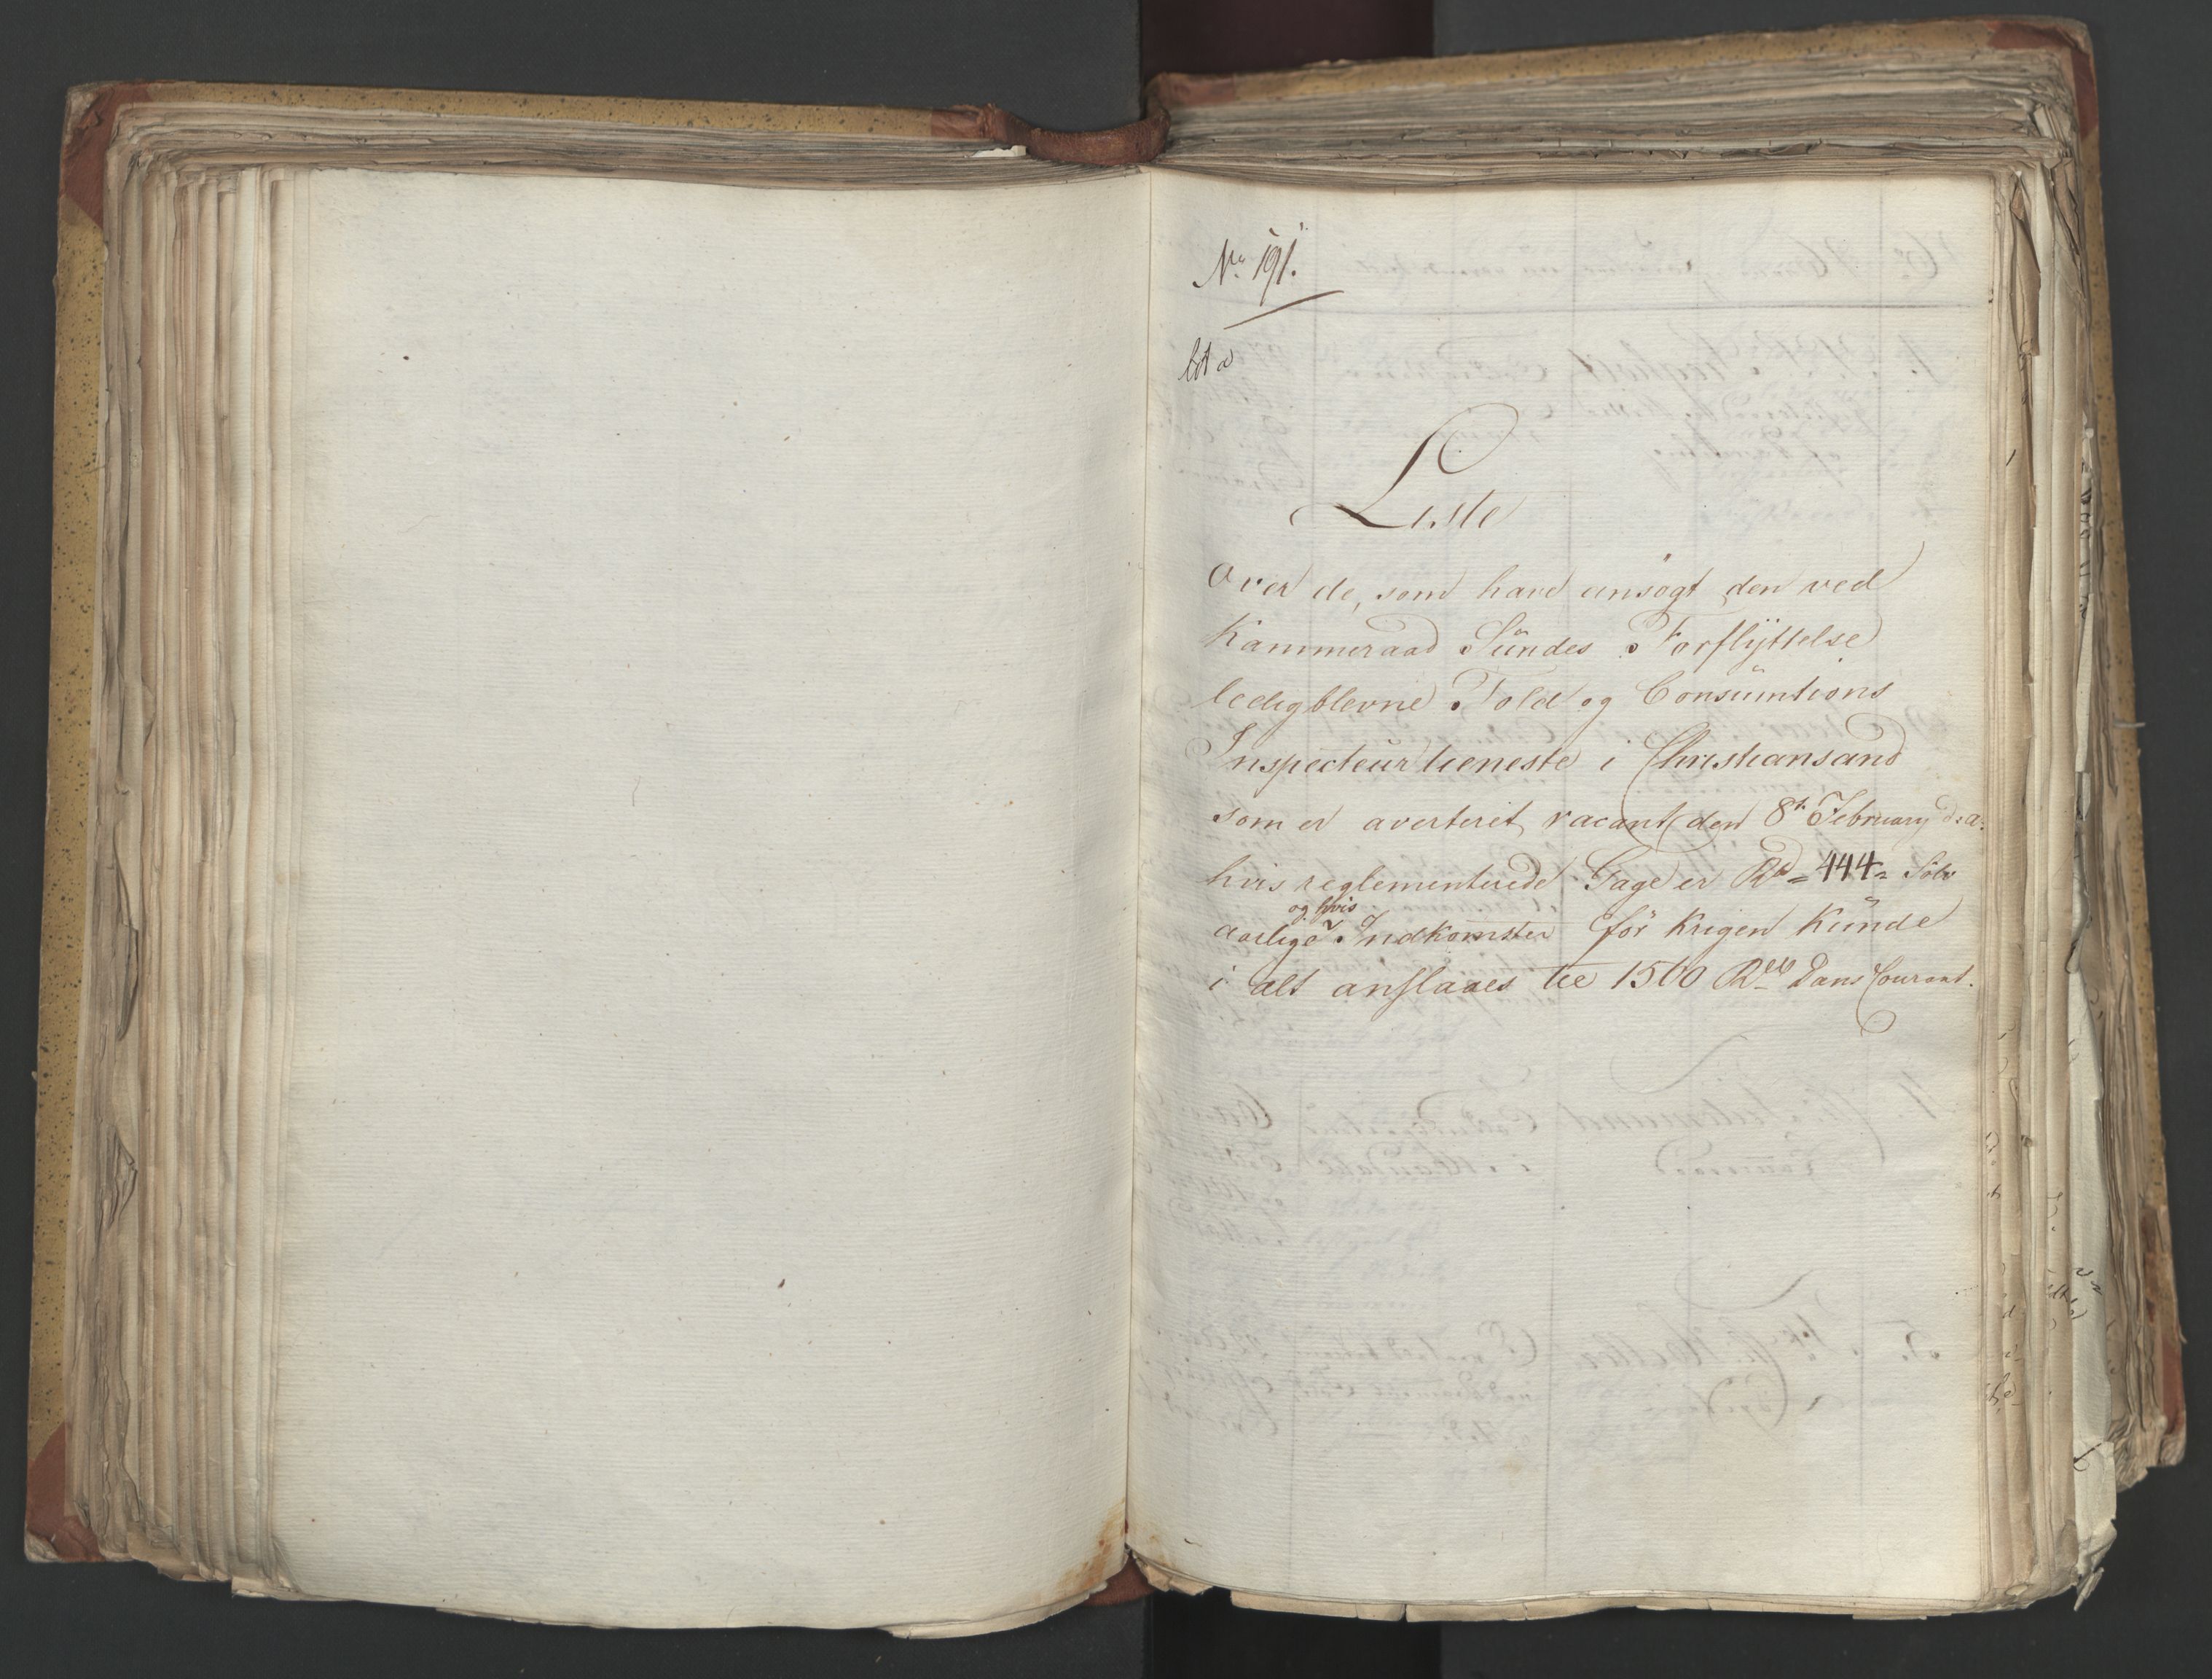 No 191.
lit a
Liste
Over de, som have ansøgt den ved
Kammeraad Sündes Forflÿttelse
ledigblevne Told og Consümtions
Inspecteurtieneste i Christiansand
som er averteret vacant den 8t February d: a:
hvis reglementerede Gage er Rd = 444 = Sölv
og hvis
aarlige Indkomster för Krigen Künde
i alt anslaaes til 1500 Rd Dansk Courant.